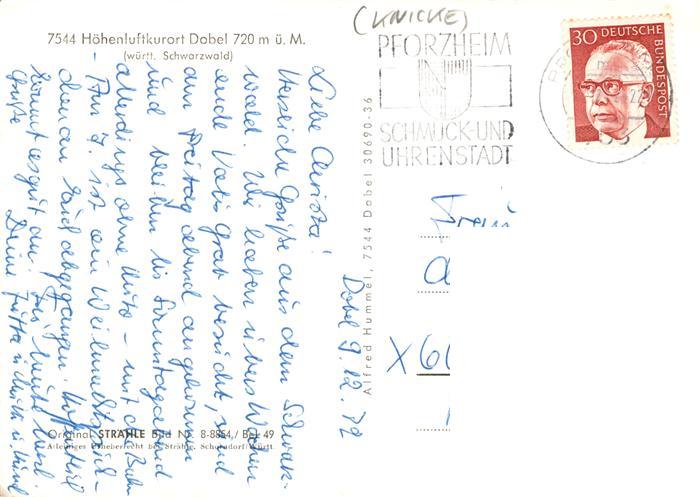 (KNICKE)
7544 Höhenluftkurort Dobel 720 m ü. M.
(württ. Schwarzwald)
PFORZHEIM
SCHMUCK-UND
UHRENSTADT
30 DEUTSCHE
BUNDESPOST
Dobel 9.12.72
Liebe Christa!
Herzliche Grüße aus dem Schwarz-
wald. Wir haben übers Wochen
ende Vatis Grab besucht, sind
am Freitag abend angekommen
und bleiben bis Sonntagabend
allerdings ohne Auto - mit der Bahn
- Am 7. ist ein Weihnachtspäck-
chen an Euch abgegangen. Hoffentlich
kommt es gut an. Für heute herzl.
Grüße Deine Jutta
Alfred Hummel, 7544 Dobel 30690-36
X 60
Original STRÄHLE Bild Nr. 8-8854 / Bek 49
Alleiniges Urheberrecht bei Strähle, Schorndorf/Württ.